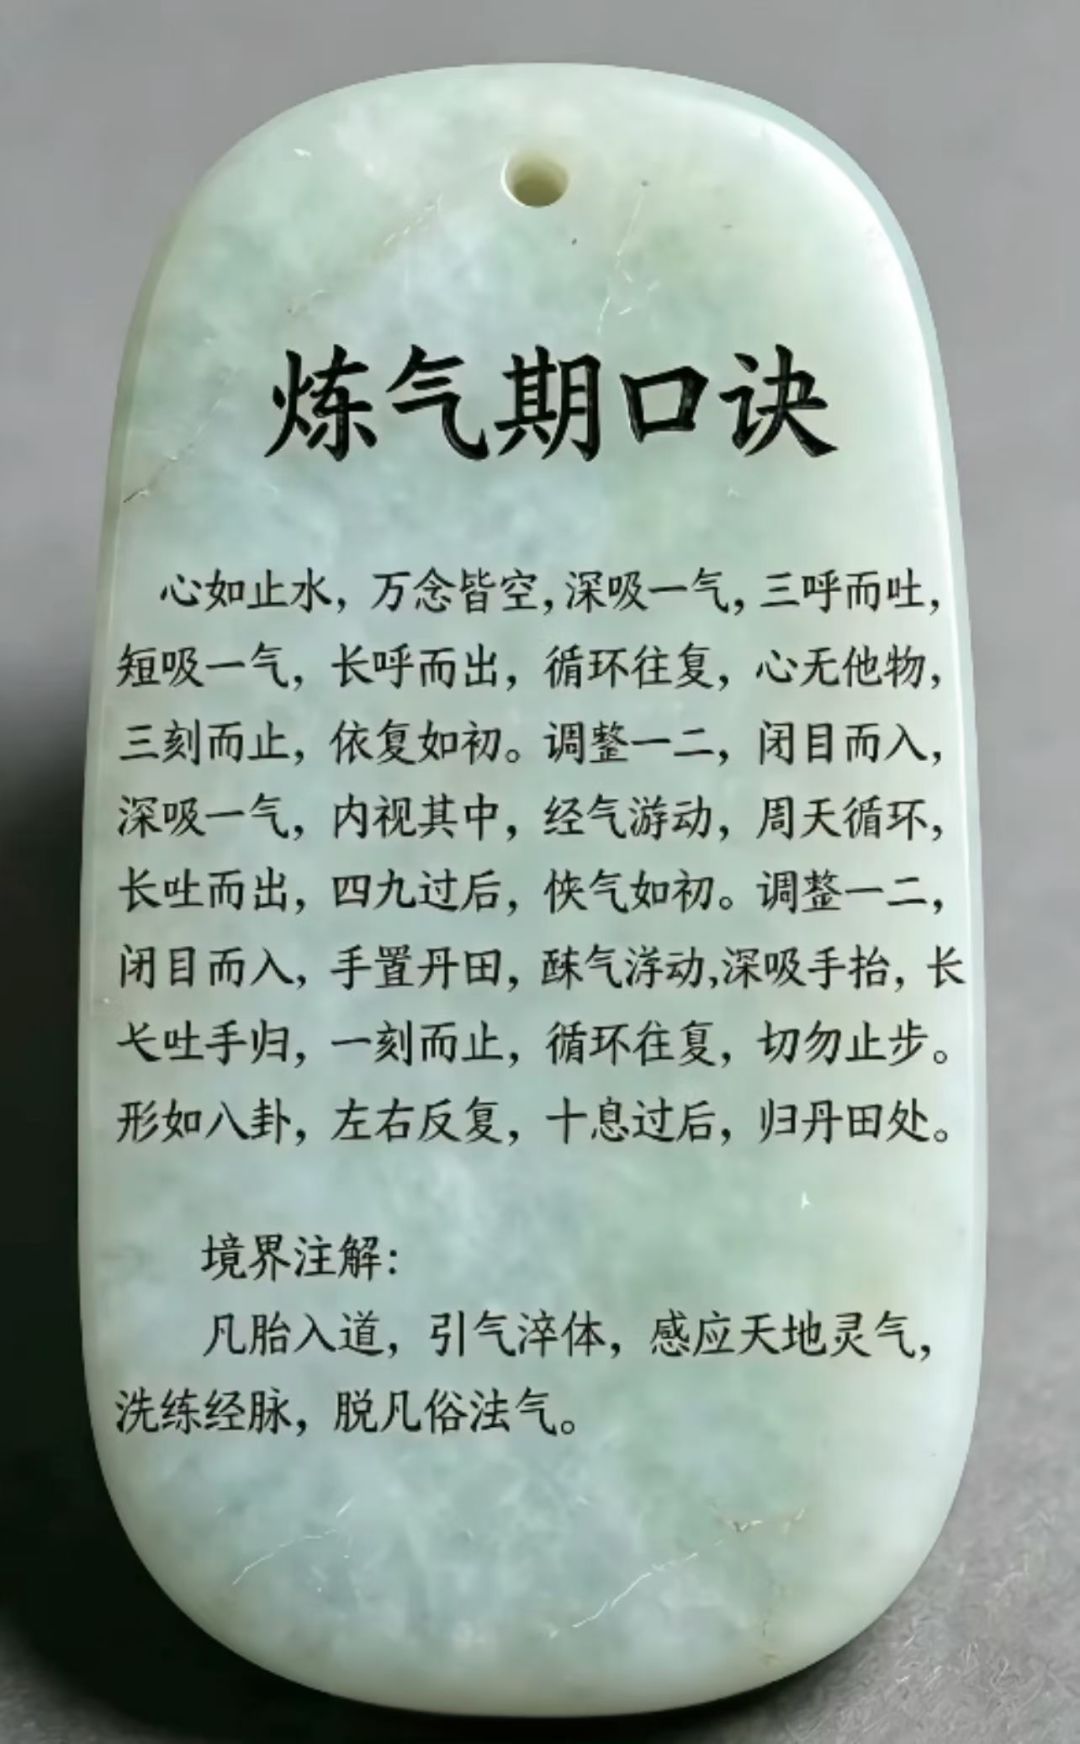 炼气期口诀
心如止水，万念皆空，深吸一气，三呼而吐，
短吸一气，长呼而出，循环往复，心无他物，
三刻而止，依复如初。调整一二，闭目而入，
深吸一气，内视其中，经气游动，周天循环，
长吐而出，四九过后，气如初。调整一二，
闭目而入，手置丹田，气游动,深吸手抬，长
吐手归，一刻而止，循环往复，切勿止步。
形如八卦，左右反复，十息过后，归丹田处。
境界注解：
凡胎入道，引气淬体，感应天地灵气，
洗练经脉，脱凡俗法气。